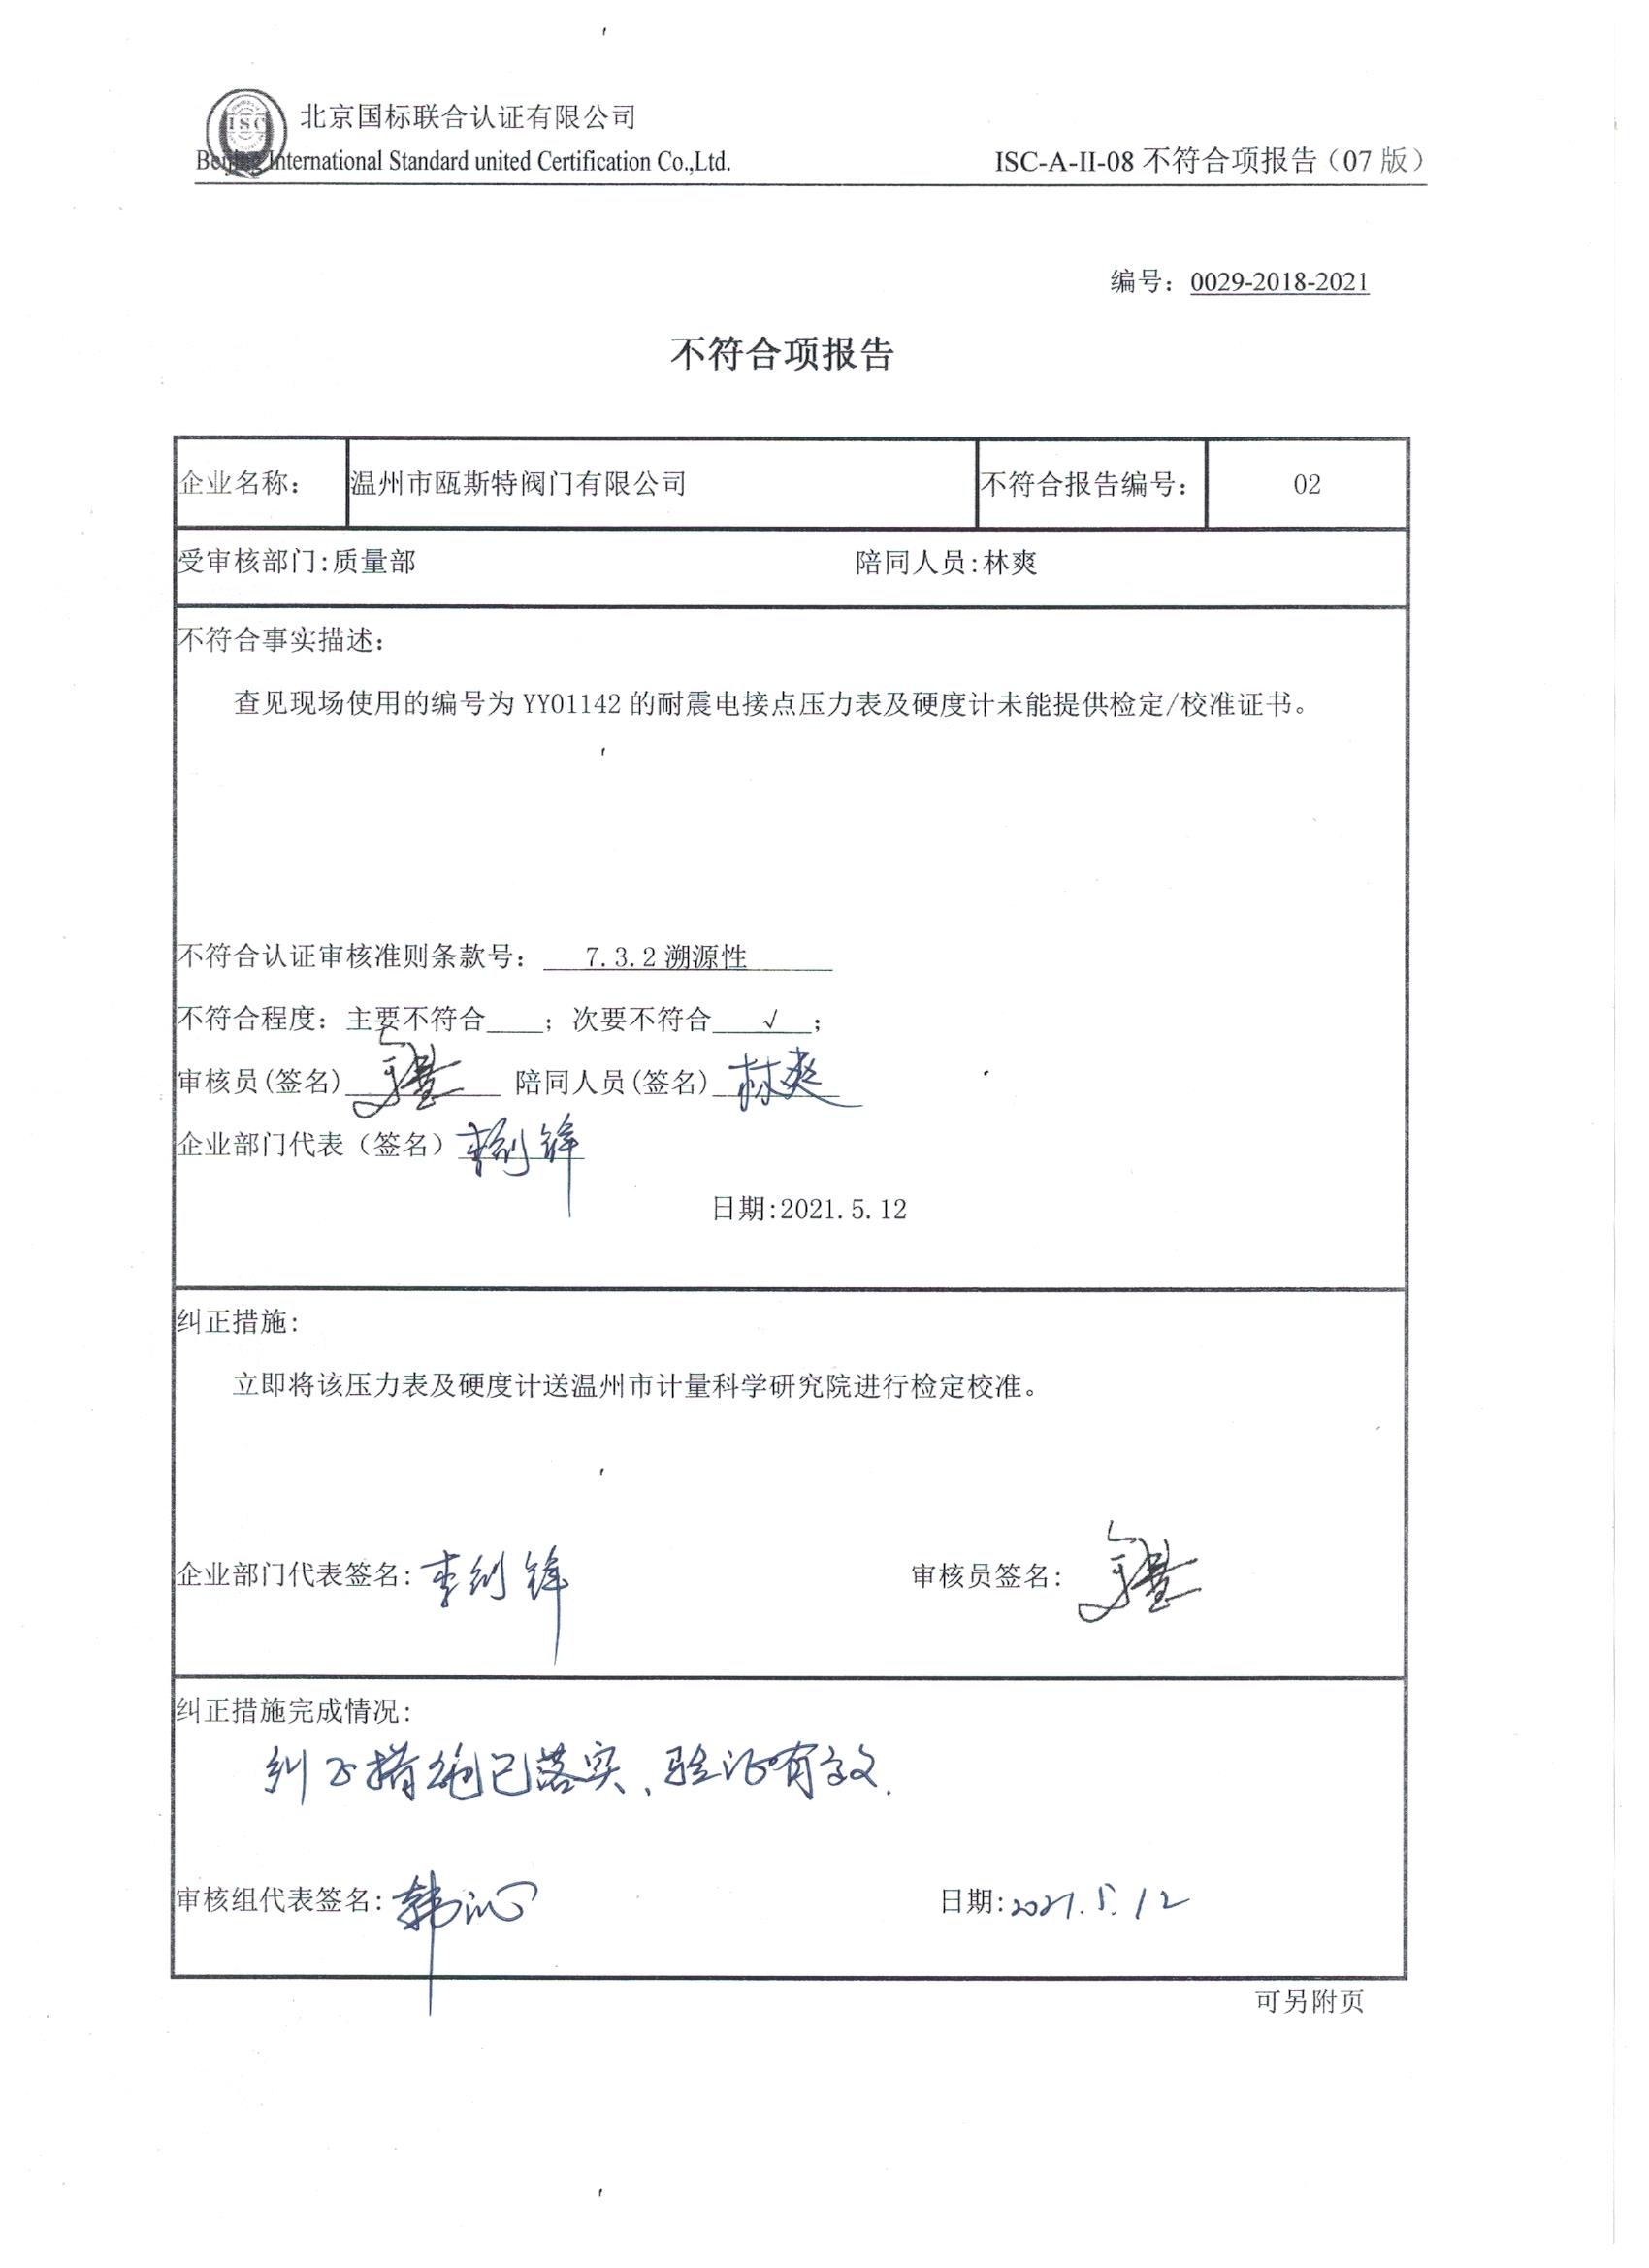 ISC
北京国标联合认证有限公司
Beijing International Standard united Certification Co.,Ltd.
ISC-A-II-08 不符合项报告（07 版）
编号：0029-2018-2021
不符合项报告
企业名称： 温州市瓯斯特阀门有限公司 不符合报告编号： 02
受审核部门:质量部 陪同人员:林爽
不符合事实描述：
查见现场使用的编号为 YY01142 的耐震电接点压力表及硬度计未能提供检定/校准证书。
不符合认证审核准则条款号： 7.3.2 溯源性
不符合程度：主要不符合 ；次要不符合 √ ；
审核员(签名) 陪同人员(签名) 林爽
企业部门代表（签名）
日期:2021.5.12
纠正措施：
立即将该压力表及硬度计送温州市计量科学研究院进行检定校准。
企业部门代表签名: 审核员签名:
纠正措施完成情况:
纠正措施已落实、验证有效.
审核组代表签名: 日期:2021.5.12
可另附页